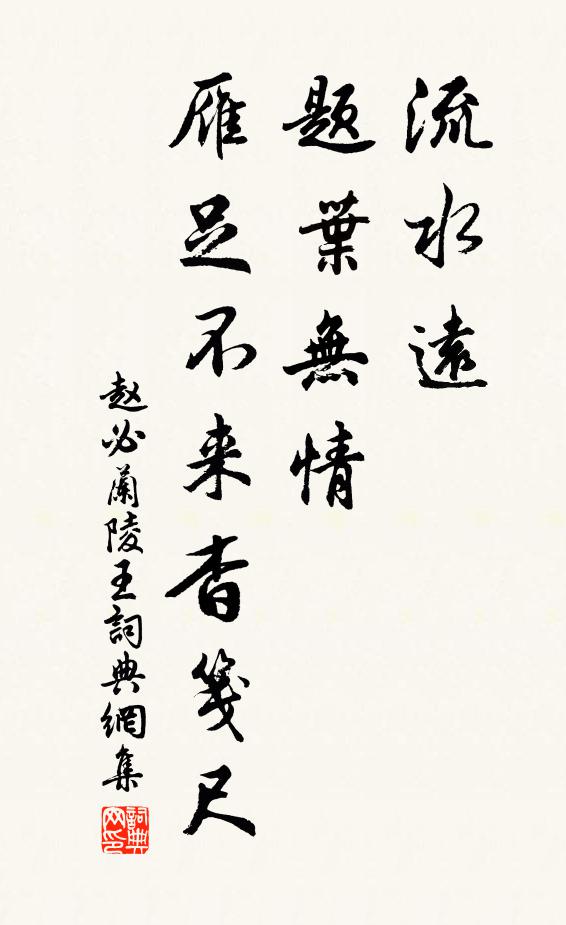 流水遠
題葉無情
雁足不来杳箋尺
赵必蘭陵王詞典網集
詞典网印